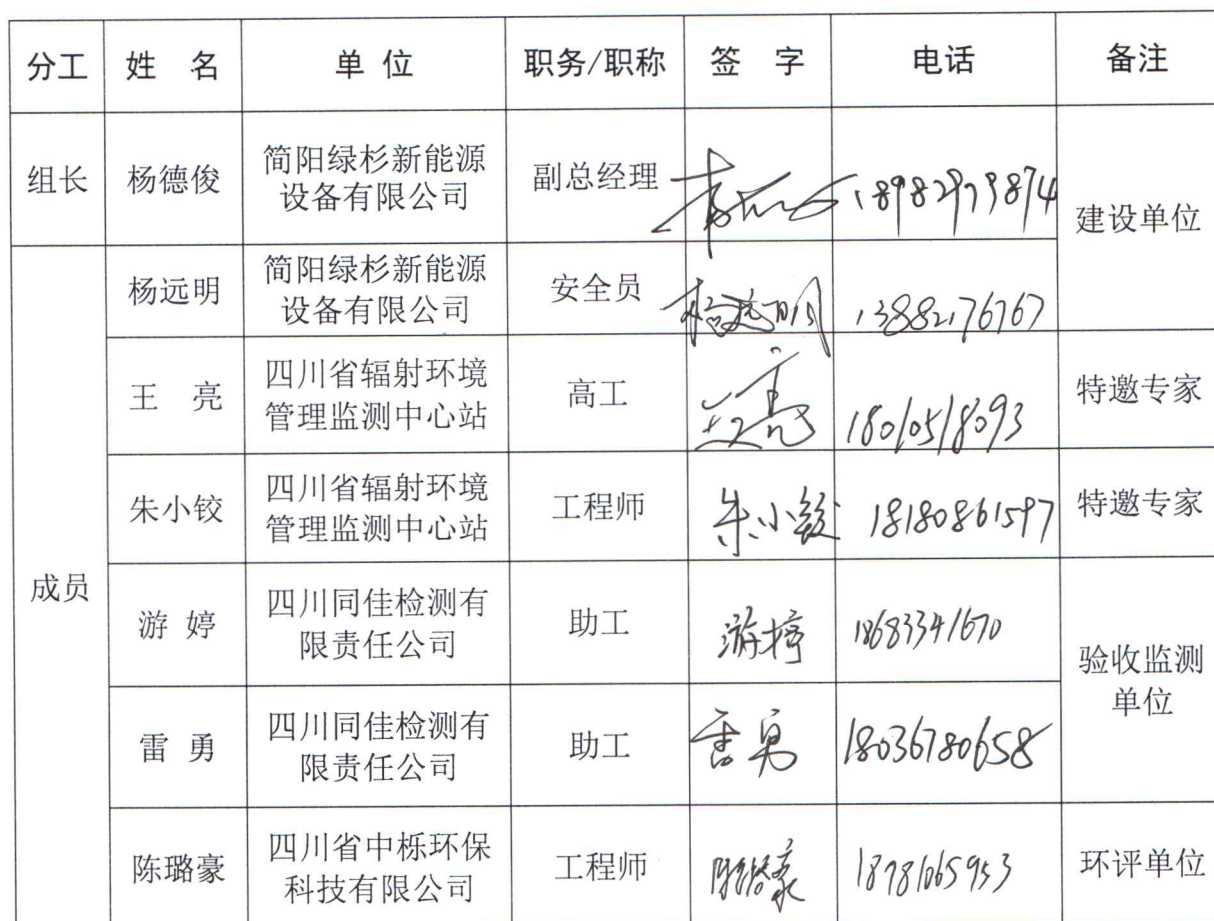 分工 姓 名 单 位 职务/职称 签 字 电话 备注
组长 杨德俊 简阳绿杉新能源设备有限公司 副总经理 18982979874 建设单位
成员
杨远明 简阳绿杉新能源设备有限公司 安全员 杨远明 13882176767
王 亮 四川省辐射环境管理监测中心站 高工 王亮 18010518093 特邀专家
朱小铰 四川省辐射环境管理监测中心站 工程师 朱小铰 18180861597 特邀专家
游 婷 四川同佳检测有限责任公司 助工 游婷 18683341670 验收监测单位
雷 勇 四川同佳检测有限责任公司 助工 雷勇 18036780658
陈璐豪 四川省中栎环保科技有限公司 工程师 陈璐豪 18781665953 环评单位